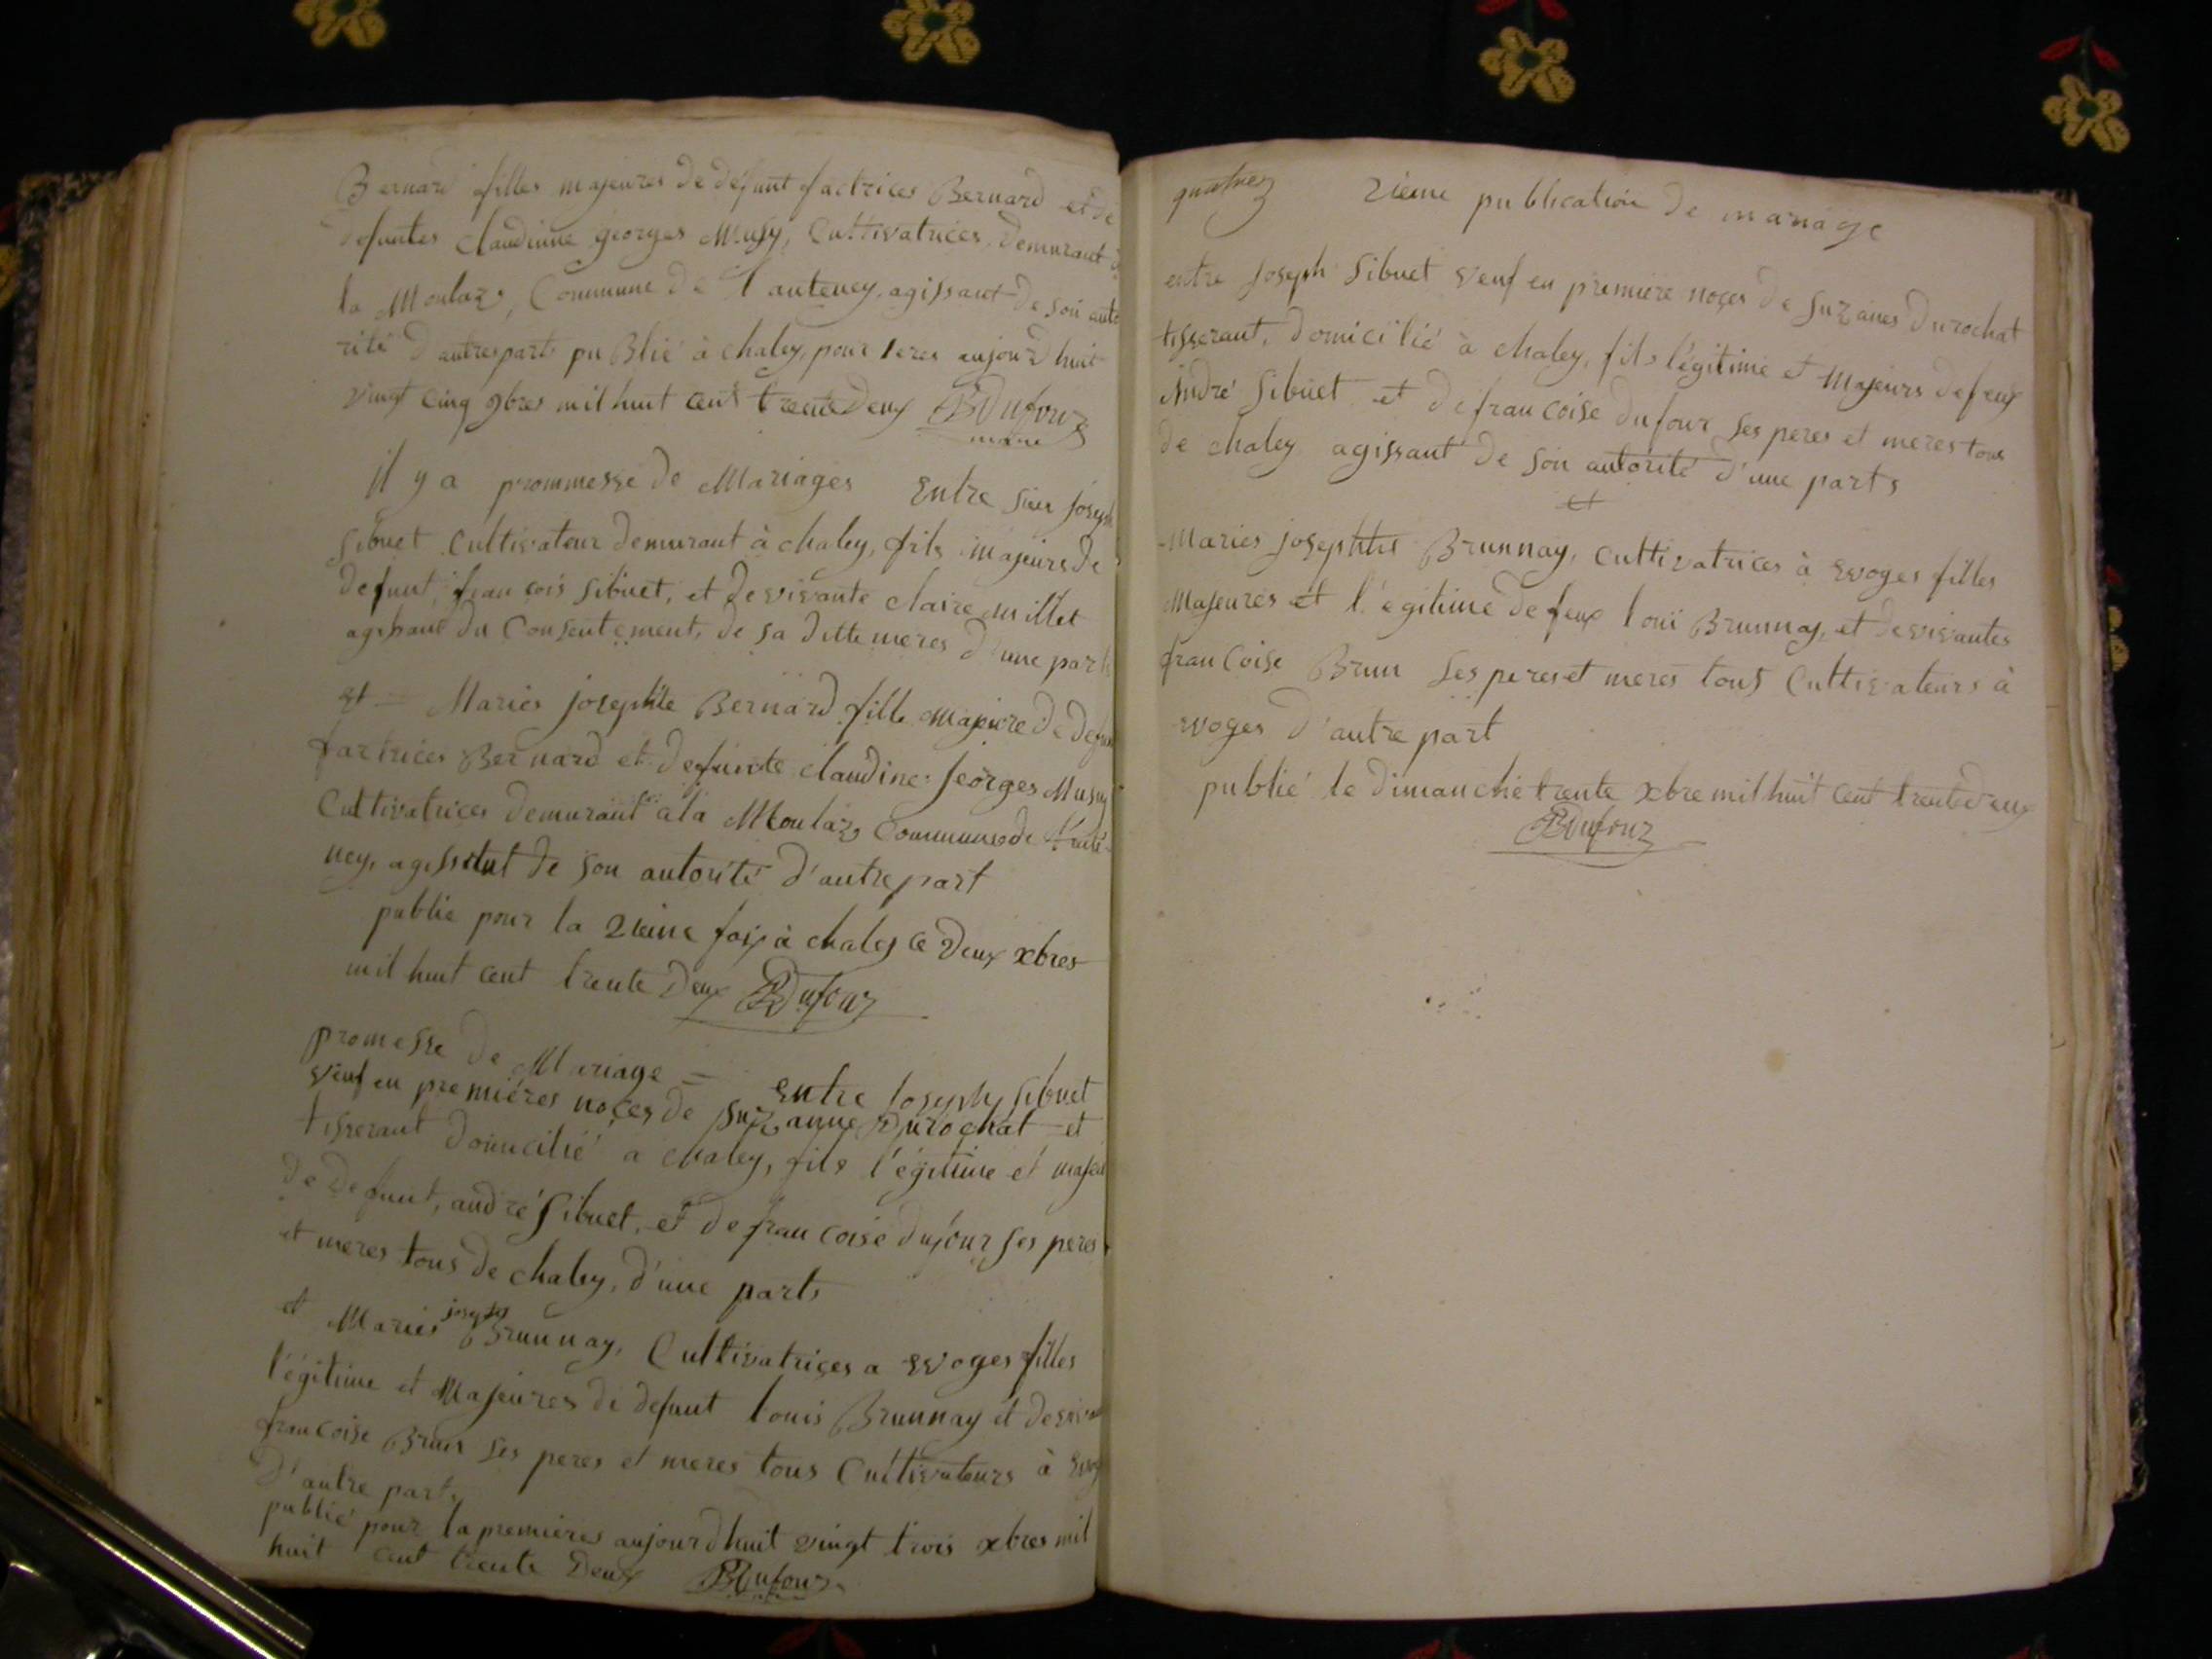 Bernard filles majeures de défunt factrices Bernard et de
defuntes claudinne georges Musy, Cultivatrices, demurant à
la Moulaz, Commune de Tanteney, agissant de soi auto
rité d'autrespart publié à chaley, pour 1eres aujourd huit
vingt cinq 9bres mil huit cent trente deux BDufour
maire
il y a prommesse de Mariages Entre sieur joseph
Sibuet Cultivateur demurant à chaley, fils majeurs de
defunt, francois Sibuet, et de vivante claire millet
agissant du Consentement, de sa ditte meres d'une parts
et = Maries josephte Bernard fille majeure de defunt
factrices Bernard et defunte claudine georges Musy
Cultivatrices demurant à la Moulaz Communes de tante
ney, agissant de son autorité d'autre part
publié pour la 2ieme foix à chaley ce Deux xbres
mil huit cent trente Deux BDufour
promesse de Mariage = Entre Joseph Sibuet
veuf en premiéres noçes de Suzanne Durochat et
tisserant domicilié a chaley, fils l'égitime et majeur
de defunt, andré Sibuet, et de francoise dufour ses peres
et meres tous de chaley, d'une parts
et Maries joseph Brunnay, Cultivatriçes a Evoges filles
l'égitime et Majeures de defunt louis Brunnay et de vivante
francoise Brun ses peres et meres tous Cultivateurs à Evog
d'autre parts
publié pour la premières aujourdhuit vingt trois xbres mil
huit cent trente Deux BDufour
2ieme publication de mariage
entre Joseph Sibuet veuf en premiere noçes de Suzanes Durochat
tisserant, domicilié à chaley, fils l'égitime et Majeurs de feux
André Sibuet et de francoise dufour ses peres et meres tous
de chaley agissant de son autorité d'une parts
et
Maries josephtes Brunnay, cultivatrices à Evoges filles
Majeures et l'egitime de feux loui Brunnay, et de vivantes
francoise Brun ses peres et meres tous Cultivateurs à
Evoges d'autre part
publié le dimanche trente xbre mil huit cent trente deux
BDufour